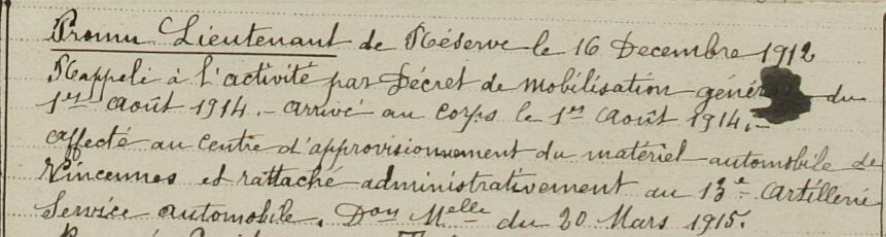 Promu Lieutenant de Réserve le 16 Decembre 1912
Rappelé à l'activité par Décret de mobilisation génér du
1er Août 1914. - arrivé au corps le 1er Août 1914. -
affecté au centre d'approvisionnement du matériel automobile de
Vincennes et rattaché administrativement au 13e Artillerie
Service automobile. Don Melle du 20 Mars 1915.